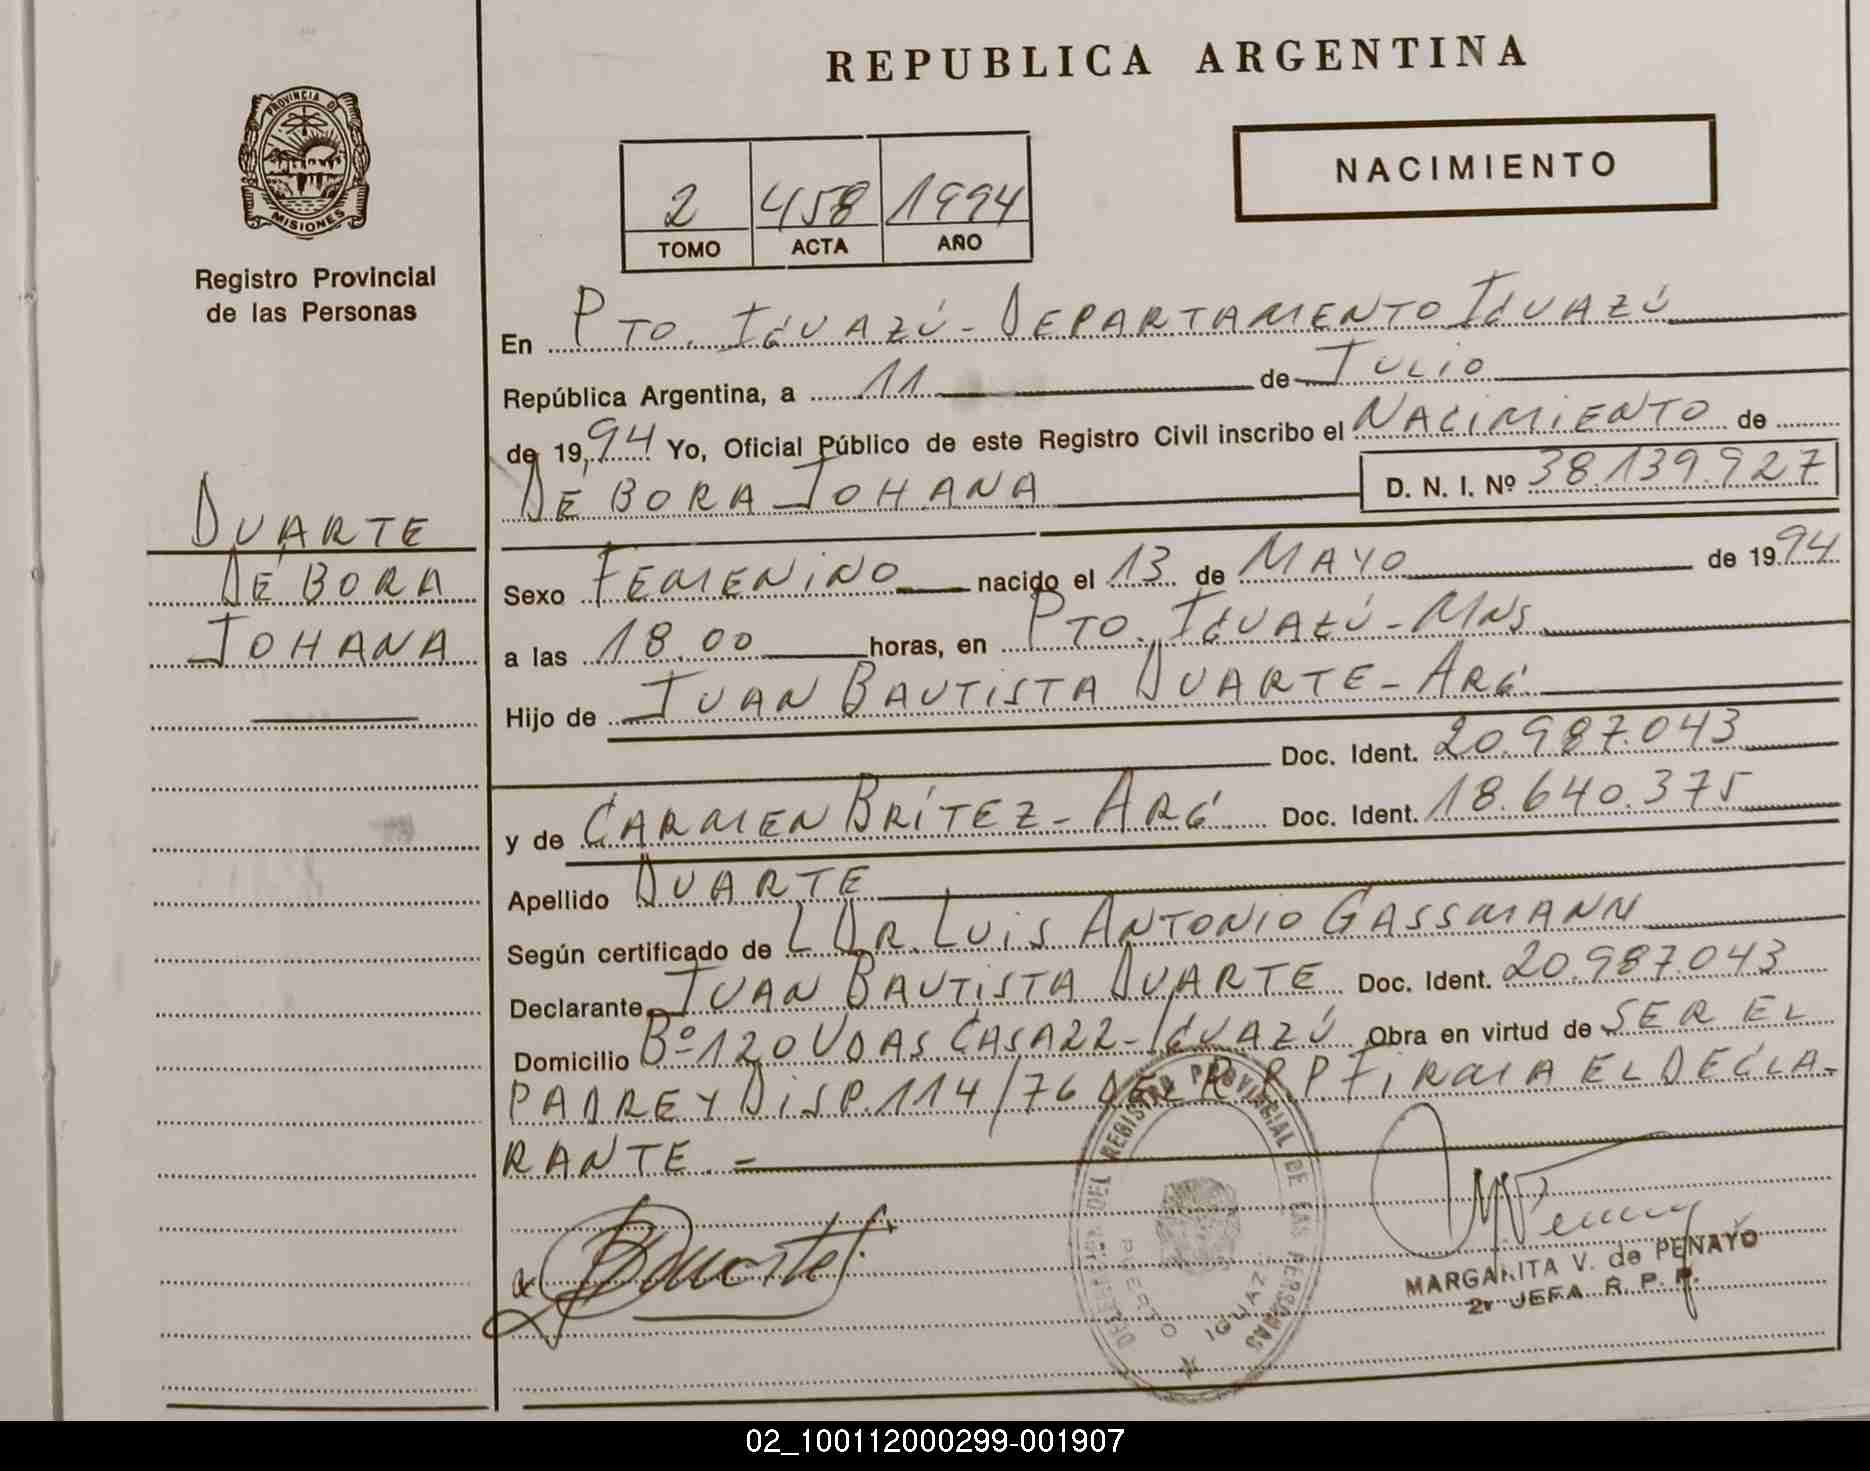 REPUBLICA ARGENTINA
PROVINCIA DE
MISIONES
NACIMIENTO
2 458 1994
TOMO ACTA AÑO
Registro Provincial
de las Personas
En PTO. IGUAZÚ - DEPARTAMENTO IGUAZÚ
República Argentina, a 11 de JULIO
de 19,94 Yo, Oficial Público de este Registro Civil inscribo el NACIMIENTO de
DÉBORA JOHANA D. N. I. Nº 38.139.927
DUARTE
DÉBORA
JOHANA
Sexo FEMENINO nacido el 13 de MAYO de 1994
a las 18.00 horas, en PTO. IGUAZÚ - MNS
Hijo de JUAN BAUTISTA DUARTE - ARG
Doc. Ident. 20.987.043
y de CARMEN BRÍTEZ - ARG Doc. Ident. 18.640.375
Apellido DUARTE
Según certificado de L DR. LUIS ANTONIO GASSMANN
Declarante JUAN BAUTISTA DUARTE Doc. Ident. 20.987.043
Domicilio Bº 120 VDAS CASA 22 - IGUAZÚ Obra en virtud de SER EL
PADRE Y DISP. 114/76 DEL R.P.P. FIRMA EL DECLA-
RANTE. -
DEL REGISTRO PROVINCIAL DE LAS PERSONAS
PUERTO IGUAZU
MARGARITA V. de PENAYO
2º JEFA R. P. P.
02_100112000299-001907